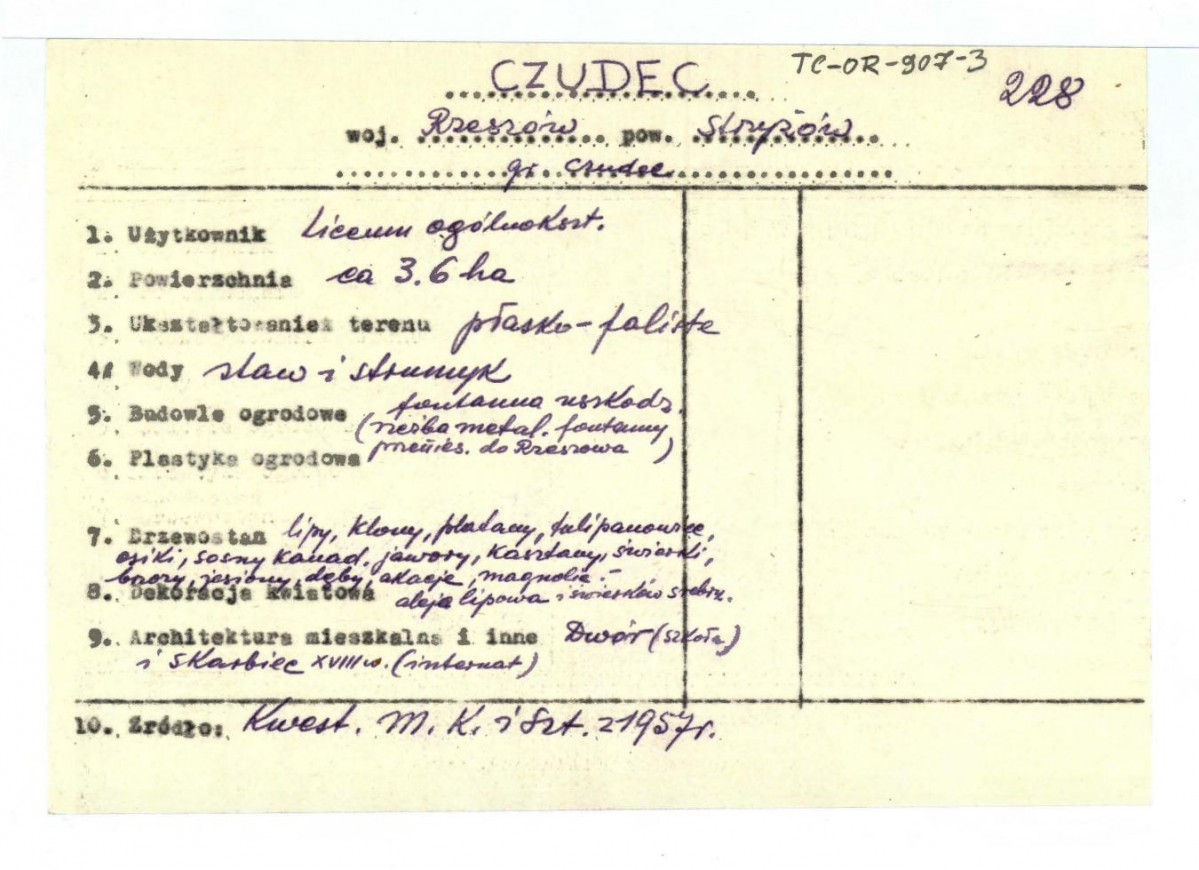 CZUDEC TC-OR-907-3 228
woj. Rzeszów pow. Strzyżów
gr. Czudec
1. Użytkownik Liceum ogólnokszt.
2. Powierzchnia ca 3.6 ha
3. Ukształtowanie terenu płasko-faliste
4. Wody staw i strumyk
5. Budowle ogrodowe fontanna uszkodz.
(rzeźba metal. fontanny
6. Plastyka ogrodowa przenies. do Rzeszowa)
7. Drzewostan lipy, klony, platany, tulipanowce,
osiki, sosny kanad. jawory, kasztany, świerki,
brzozy, jesiony, dęby, akacje, magnolie.-
8. Dekoracja kwiatowa aleja lipowa i świerków srebrz.
9. Architektura mieszkalna i inne Dwór (szkoła)
i skarbiec XVIII w. (internat)
10. Źródło: Kwest. M. K. i Szt. z 1957 r.